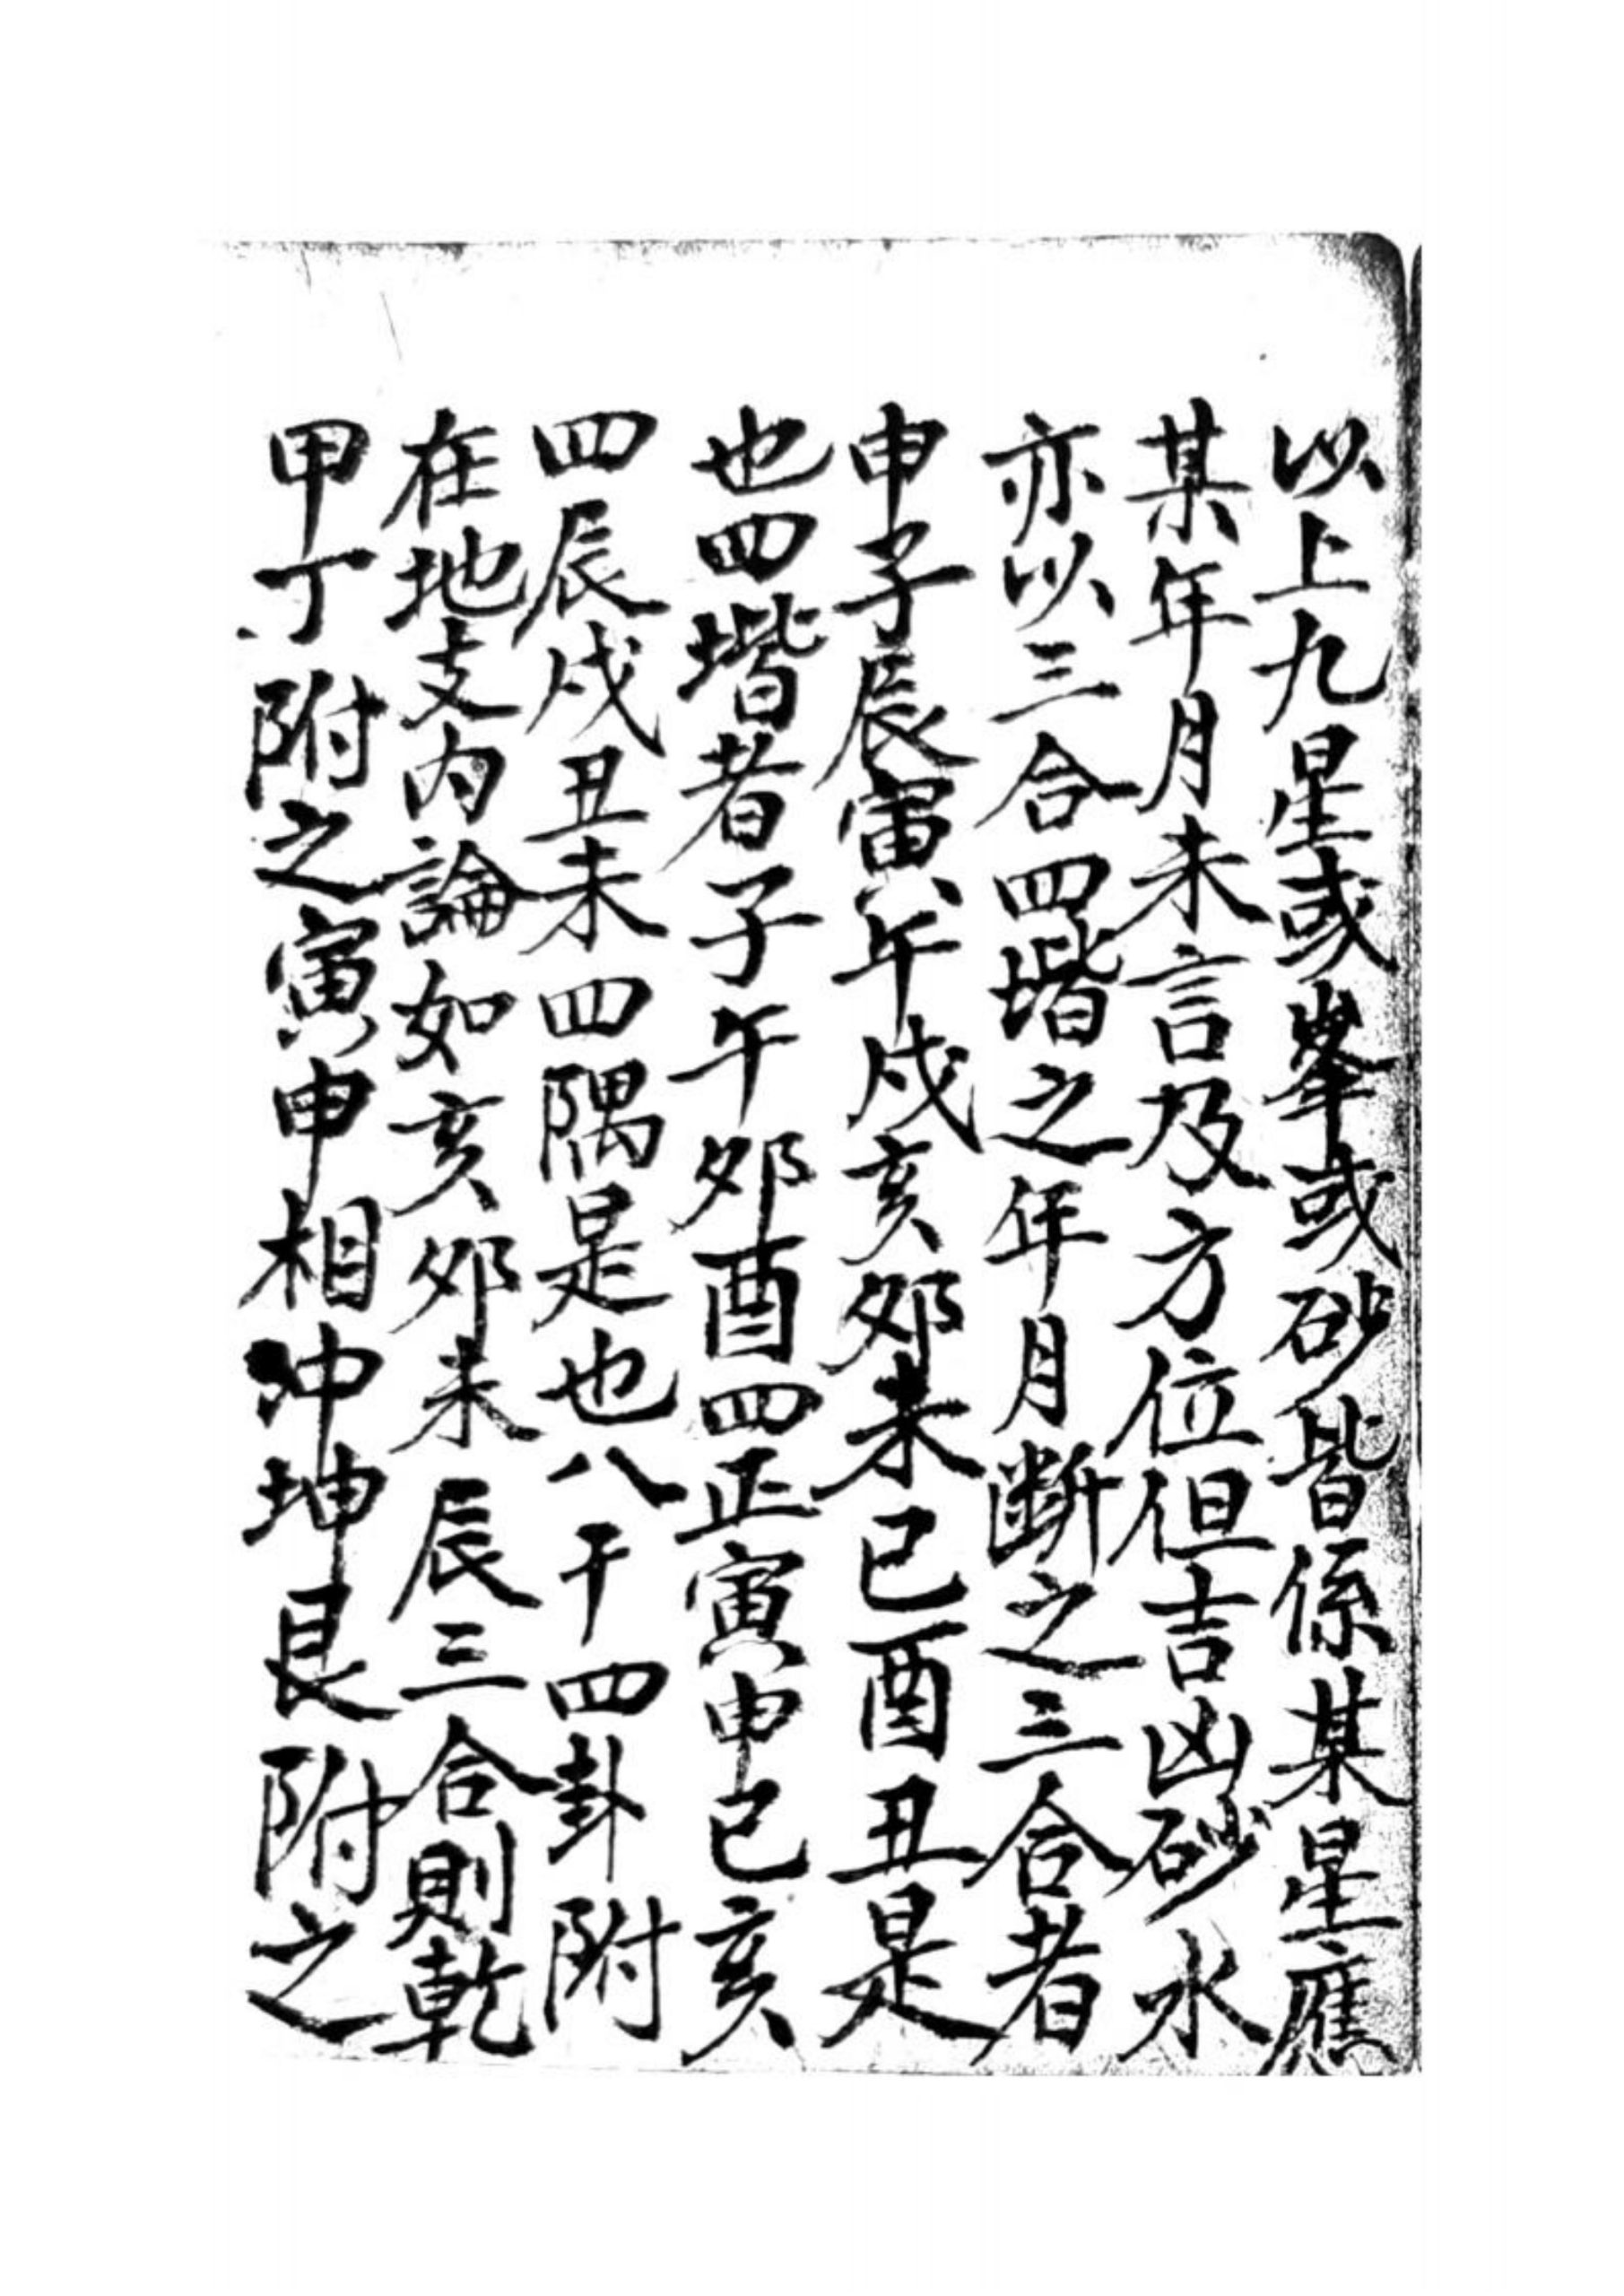 以上九星或峯或砂皆係某星應
某年月未言及方位但吉凶砂水
亦以三合四堦之年月断之三合者
申子辰寅午戍亥夘未巳酉丑是
也四堦者子午夘酉四正寅申巳亥
四辰戍丑未四隅是也八干四卦附
在地支内論如亥夘未辰三合則乾
甲丁附之寅申相冲坤艮附之